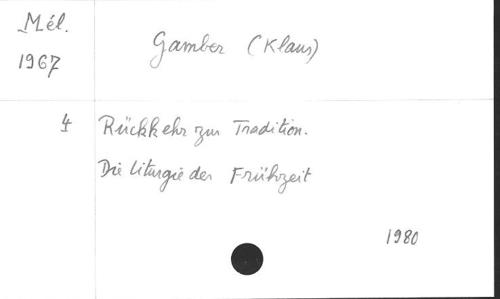 Mél.
1967
Gamber (Klaus)
4 Rückkehr zur Tradition.
Die Liturgie der Frühzeit
1980